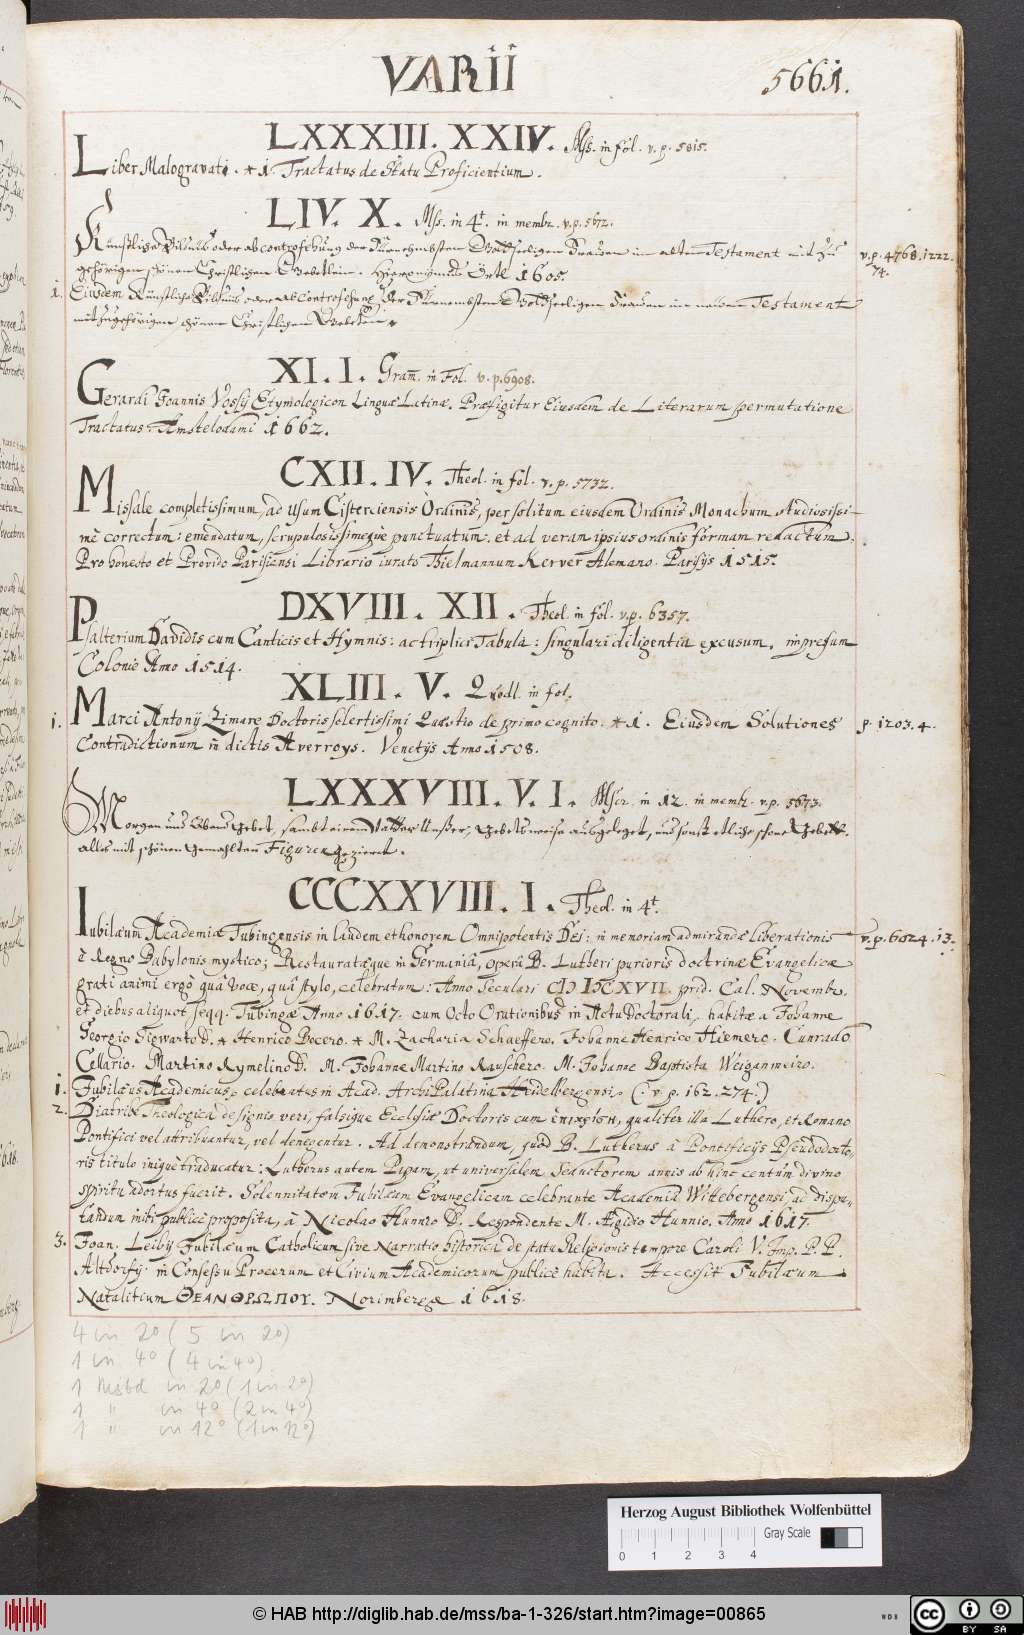 VARII
5661.
LXXXIII. XXIV. Mss. in fol. v. p. 5815.
Liber Malogravati. * 1 Tractatus de Statu Proficientium.
LIV. X. Mss. in 4t. in membr. v. p. 5672.
Künstliche Bildnis oder abcontrofehung der Fürnehmbsten Gottseeligen Frauen im alten Testament mit zu
v. p. 4768. 1222.
74.
gehörigen schönen Christlichen Gebetlein. Hieronymus Örtel 1605.
1. Eiusdem Künstliche Bildnis oder abcontrofehung der Fürnembsten Gottseeligen Frauen im neben Testament
mit zugehörigen schönen Christlichen Gebetlein.
XI. I. Gram. in Fol. v. p. 6908.
Gerardi Joannis Vossij Etymologicon Linguæ Latinæ. Præfigitur Eiusdem de Literarum permutatione
Tractatus. Amstelodami 1662.
CXII. IV. Theol. in fol. v. p. 5732.
Missale completissimum, ad usum Cisterciensis Ordinis, per solitum eiusdem Ordinis Monachum studiosissi-
mè correctum: emendatum, scrupulosissimeque punctuatum. et ad veram ipsius ordinis formam redactum.
Pro honesto et Provido Parisiensi Librario iurato Thielmannum Kerver Alemano. Parisijs 1515.
DXVIII. XII. Theol. in fol. v. p. 6357.
Psalterium Davidis cum Canticis et Hymnis: ac triplici Tabula: singulari diligentia excusum. impressum
Colonie Anno 1514.
XLIII. V. Quodl. in fol.
1. Marci Antonij Zimare Doctoris solertissimi Quæstio de primo cognito. * 1. Eiusdem Solutiones
p. 1203. 4.
Contradictionum in dictis Averroys. Venetijs Anno 1508.
LXXXVIII. V. I. Mscr. in 12. in membr. v. p. 5673.
Morgen und Abend Gebet, sambt einem Vatter Unßer, Gebetsweise ausgeleget, und sonst etliche schone Gebett.
alles mit schönen gemahlten Figuren gezieret.
CCCXXVIII. I. Theol. in 4t.
Iubilæum Academiæ Tubingensis in laudem et honorem Omnipotentis Dei: in memoriam admirandæ liberationis
v. p. 6024. 13.
è Regno Babylonis mystico; Restauratæque in Germaniâ, operâ B. Lutheri purioris doctrinæ Evangelicæ
grati animi ergò quâ voce, quâ stylo, celebratum: Anno Seculari CIƆ IƆC XVII. prid. Cal. Novembr.
et diebus aliquot seqq. Tubingæ Anno 1617. cum Octo Orationibus in Actu Doctorali, habitæ a Johanne
Georgio Sigwarto D. * Henrico Bocero. * M. Zacharia Schaeffero. Johanne Henrico Hiemero. Cunrado
Cellario. Martino Rymelino D. M. Johanne Martino Rauschero. M. Johanne Baptista Weiganmeiro.
1. Jubilæus Academicus, celebratus in Acad. ArchiPalatina Heidelbergensi. (: v. p. 162. 274.)
2. Diatribe Theologica de signis veri, falsique Ecclesiæ Doctoris cum ἐπικρίσει, qualiter illa Luthero, et Romano
Pontifici vel attribuantur, vel denegentur. Ad demonstrandum, quòd B. Lutherus à Pontificijs Pseudodocto-
ris titulo iniquè traducatur: Lutherus autem Papam, ut universalem Seductorem annis ab hinc centum divino
spiritu adortus fuerit. Solennitatem Jubilæam Evangelicam celebrante Academia Wittebergensi, ad dispu-
tandum inibi publicè proposita, à Nicolao Hunnio D. Respondente M. Ægidio Hunnio. Anno 1617.
3. Joan. Leibij Jubilæum Catholicum sive Narratio historica de statu Religionis tempore Caroli V. Imp. P. P.
Altdorfij in Consessu Procerum et Civium Academicorum publicè habita. Accessit Jubilæum
Natalitium ΘΕΑΝΘΡΩΠΟΥ. Norimbergæ 1618.
4 in 2° (5 in 2°)
1 in 4° (4 in 4°)
1 Msbd in 2° (1 in 2°)
1 " in 4° (2 in 4°)
1 " in 12° (1 in 12°)
Herzog August Bibliothek Wolfenbüttel
Gray Scale
0 1 2 3 4
© HAB http://diglib.hab.de/mss/ba-1-326/start.htm?image=00865
WDB
cc BY SA